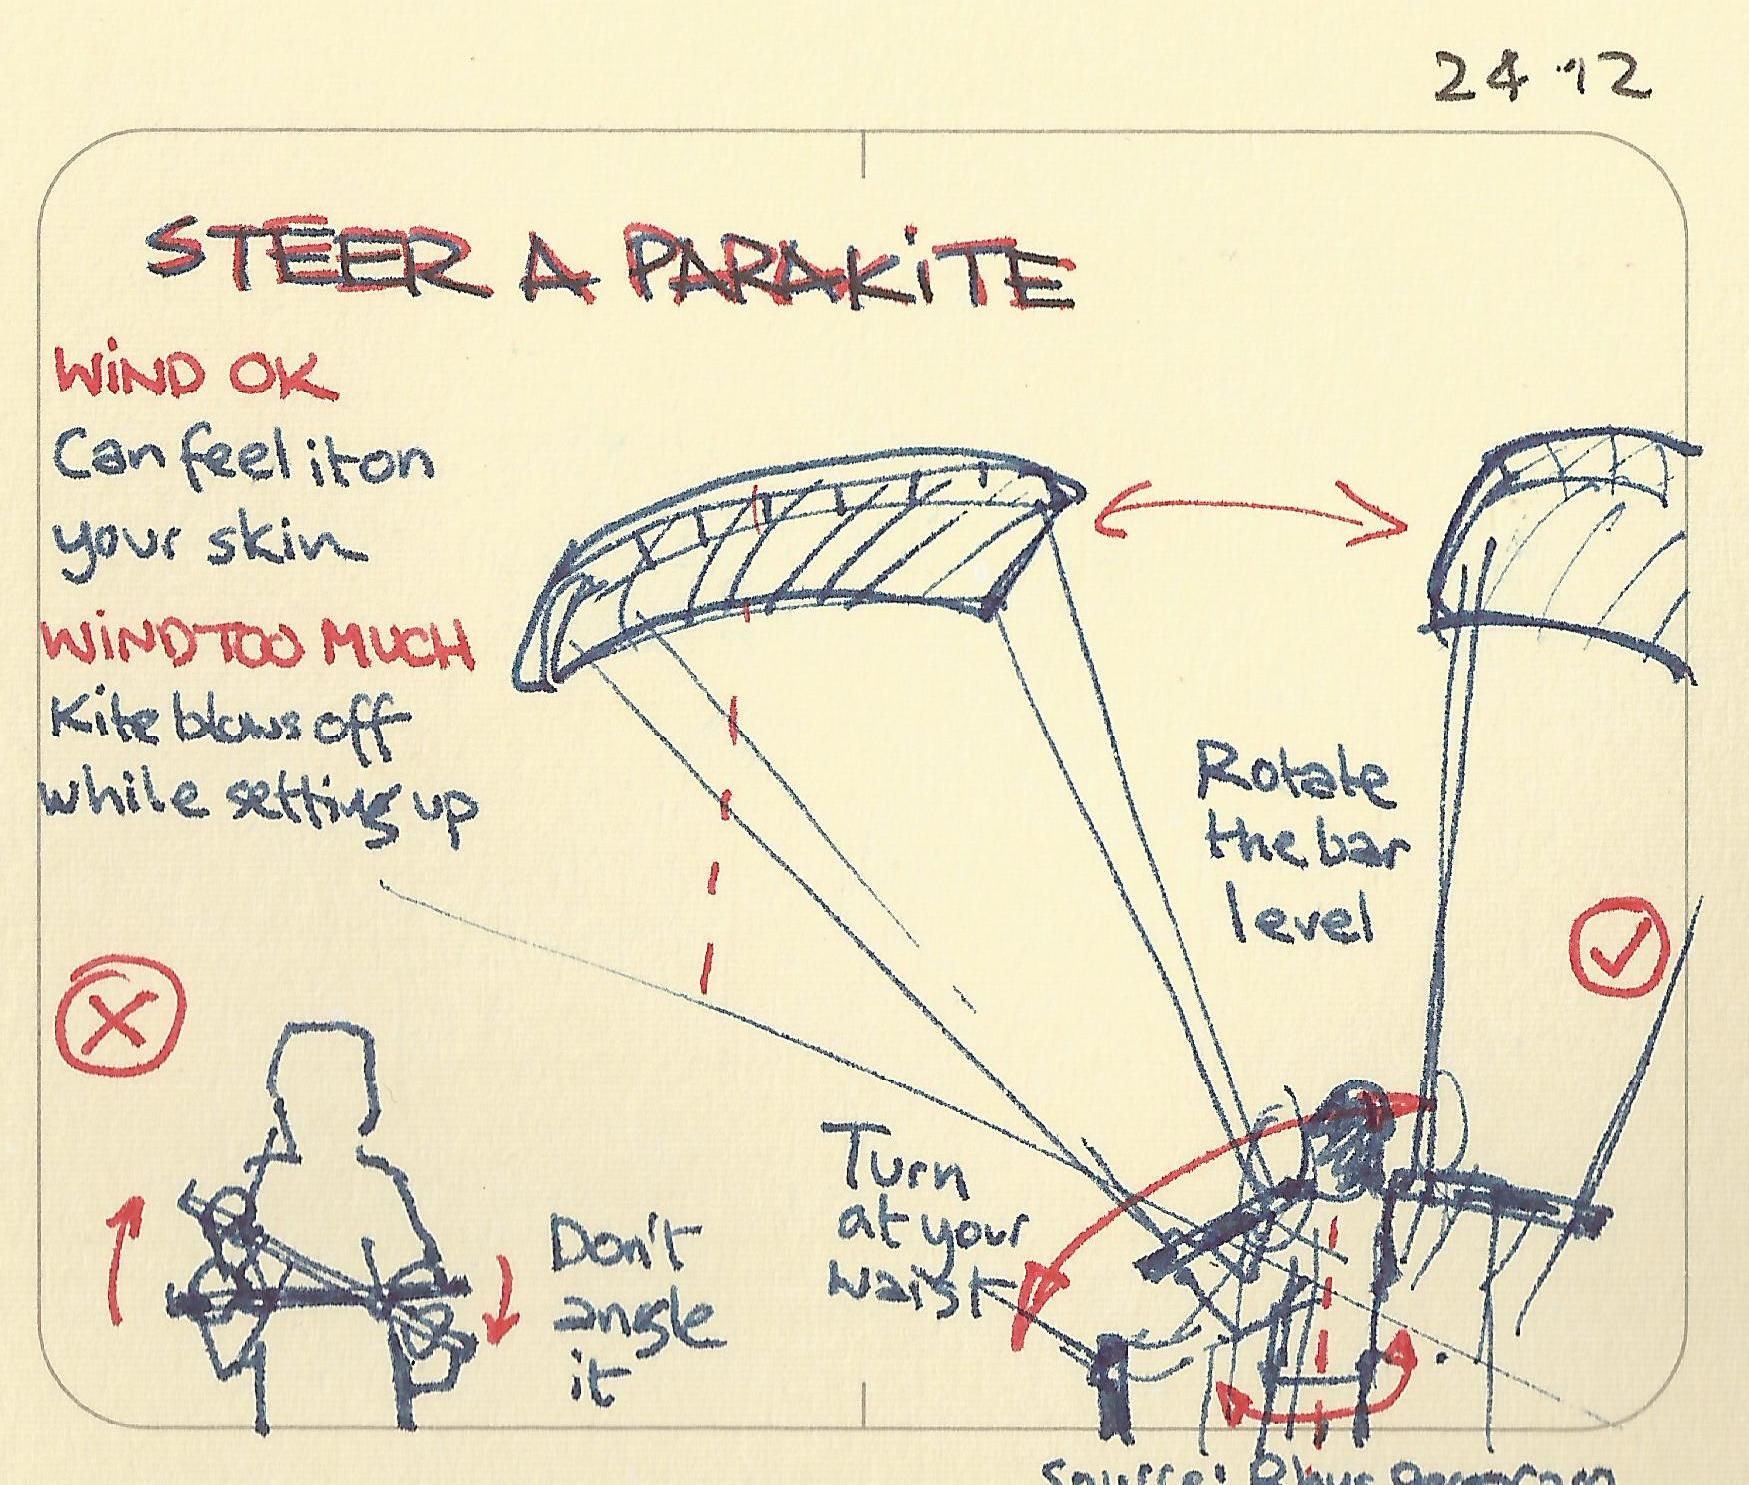 24.12
STEER A PARAKiTE
WiND OK
Can feel it on
your skin
WiND TOO MUCH
Kite blows off
while setting up
Rotate
the bar
level
Turn
at your
waist
Don't
angle
it
Source: